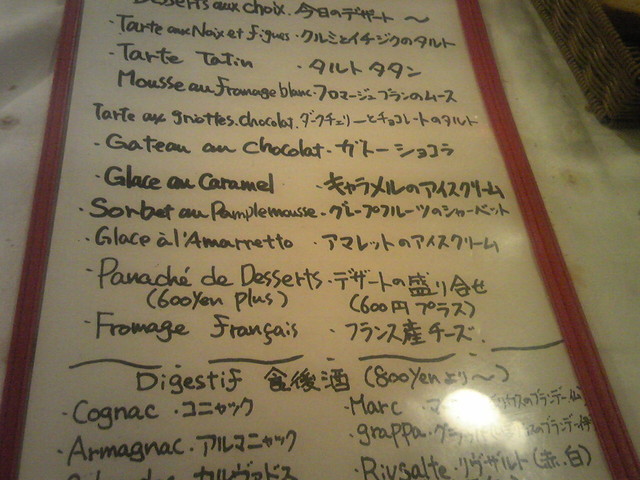 Desserts aux choix. 今日のデザート 〜
・Tarte aux Noix et figues・クルミとイチジクのタルト
・Tarte Tatin ・タルトタタン
Mousse au fromage blanc・フロマージュブランのムース
Tarte aux griottes.chocolat.ダークチェリーとチョコレートのタルト
・Gateau au chocolat・ガトーショコラ
・Glace au Caramel ・キャラメルのアイスクリーム
・Sorbet au Pamplemousse・グレープフルーツのシャーベット
・Glace à l'Amarretto ・アマレットのアイスクリーム
・Panaché de Desserts・デザートの盛り合せ
(600yen plus) (600円プラス)
・Fromage français ・フランス産チーズ.
Digestif 食後酒 (800yenより〜)
・Cognac ・コニャック
・Marc
・Armagnac・アルマニャック
・grappa・
カルヴァドス
・Rivsalte・リヴザルト(赤.白)